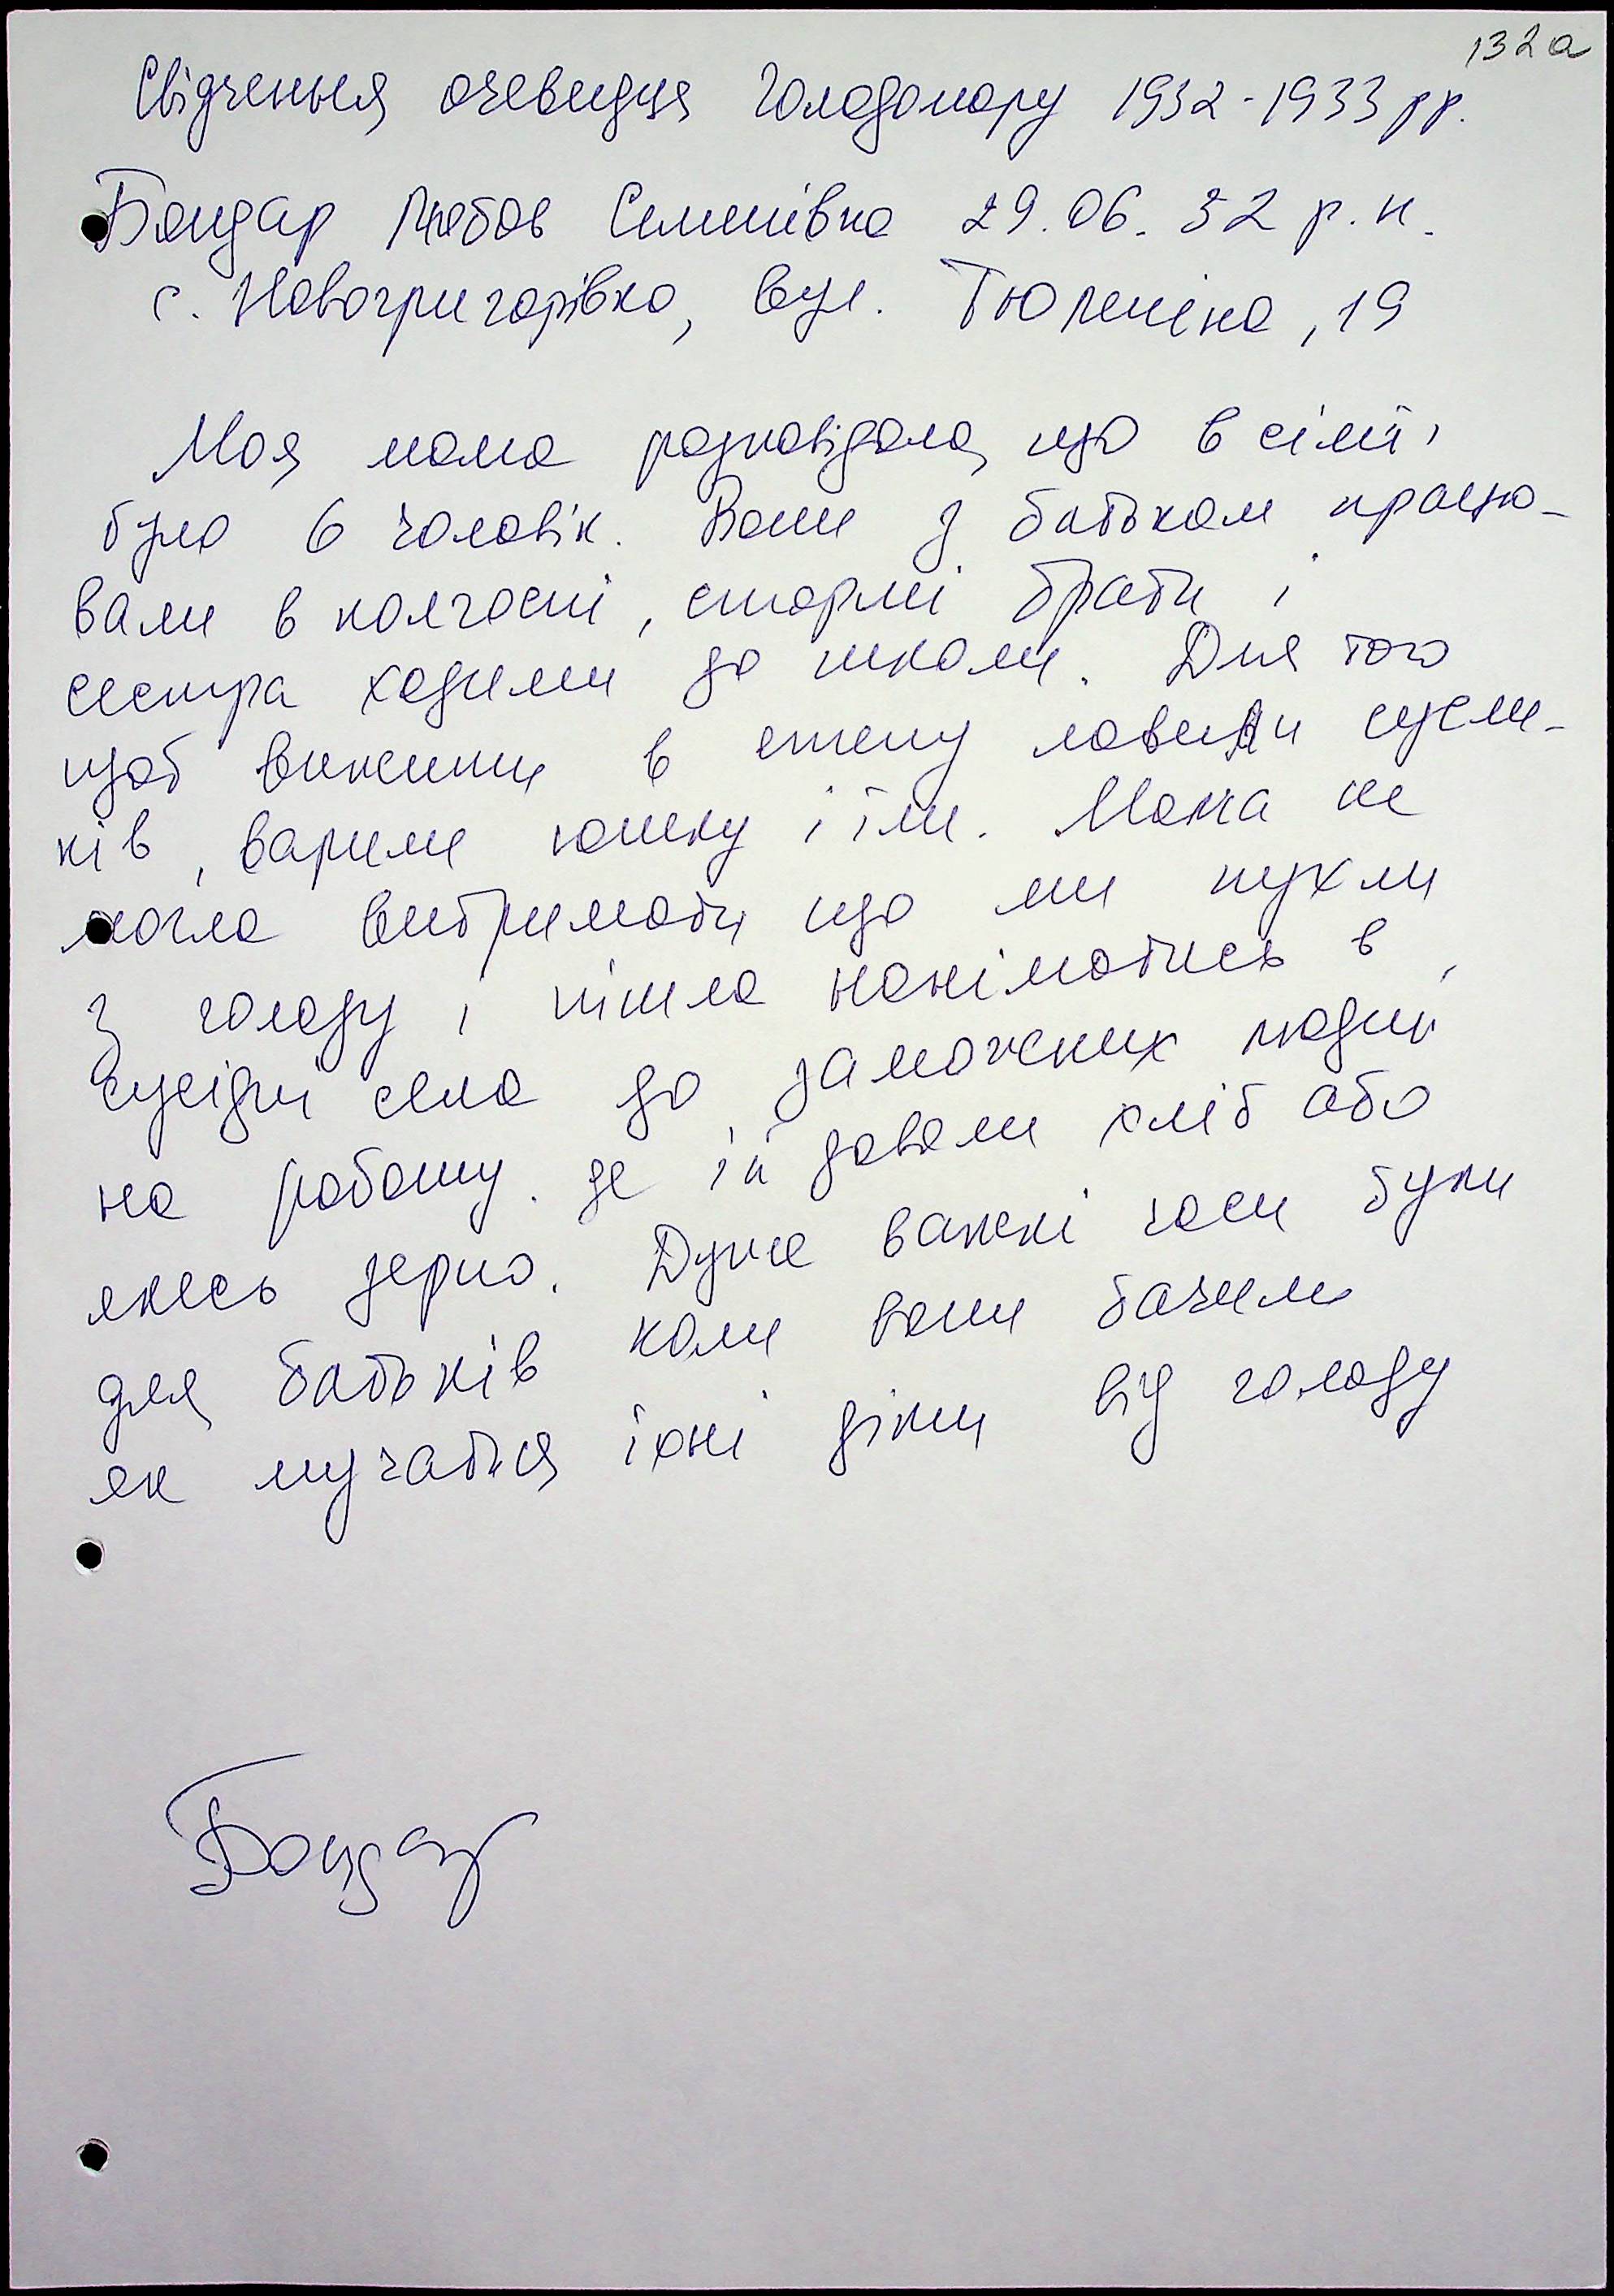 132а
Свідчення очевидця Голодомору 1932-1933 рр.
Бондар Любов Семенівна 29.06.32 р.н.
с. Новогригорівка, вул. Тюленіна, 19
Моя мама розповідала, що в сім'ї
було 6 чоловік. Вони з батьком працю-
вали в колгоспі, старші брати і
сестра ходили до школи. Для того
щоб вижити в степу ловили сусли-
ків, варили юшку і їли. Мама не
могла витримати що ми пухли
з голоду і пішла нанімались в
сусідні села до заможних людей
на роботу. де їй давали хліб або
якесь зерно. Дуже важкі часи були
для батьків коли вони бачили
як мучаться їхні діти від голоду
Бондар